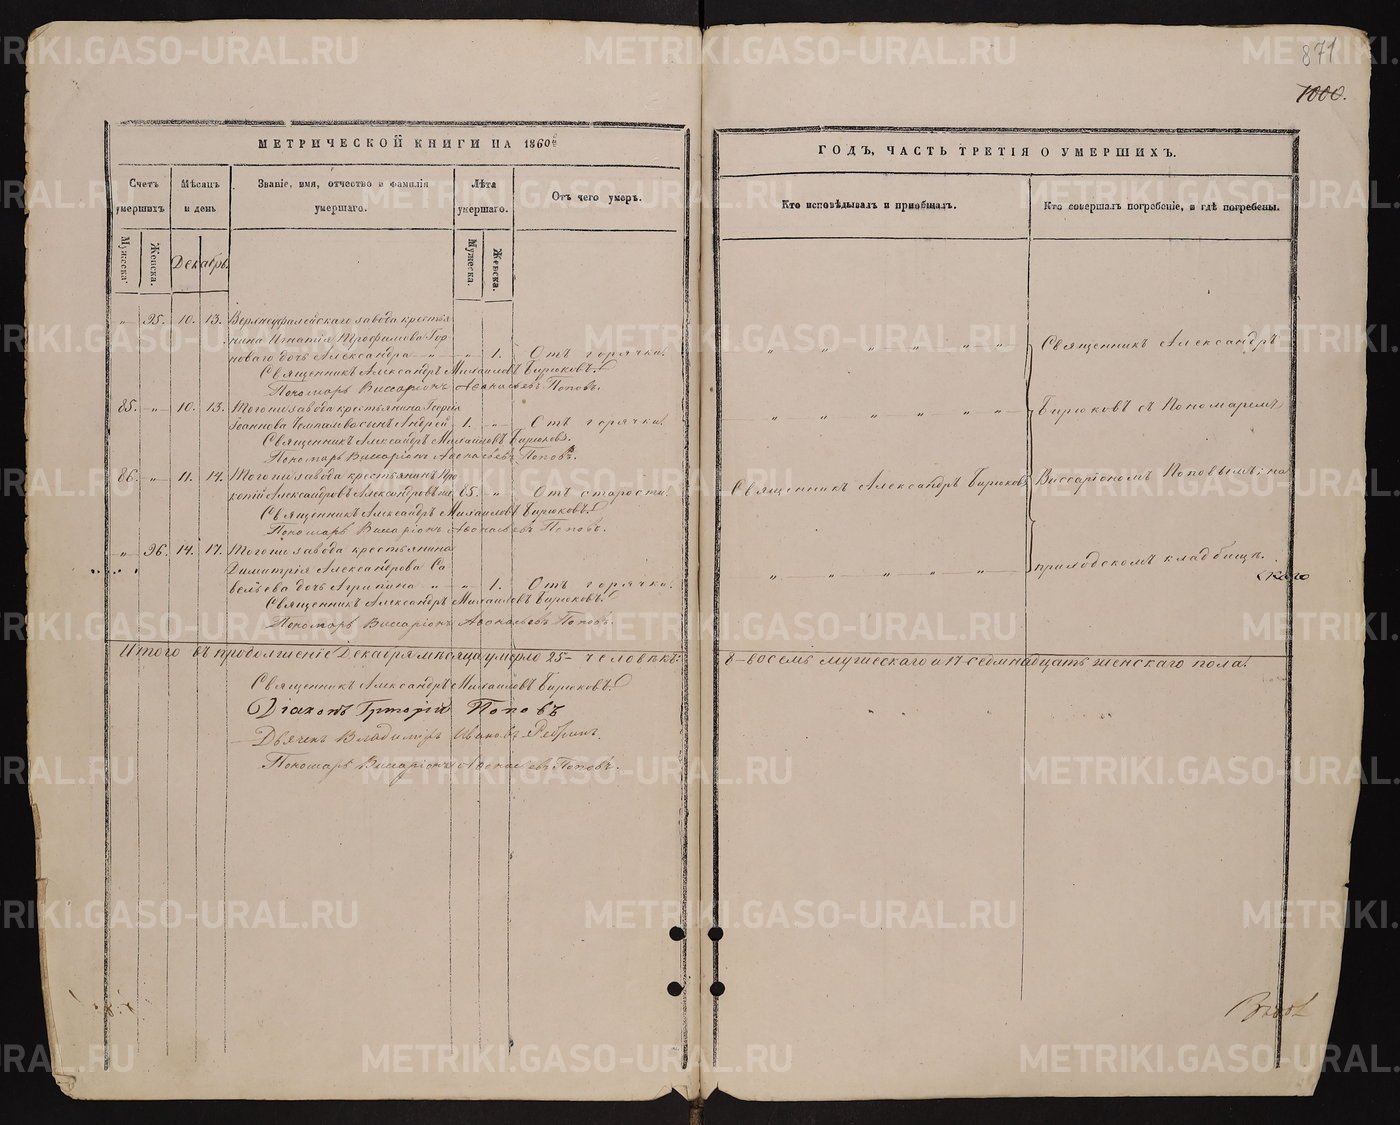 871
1000.
МЕТРИЧЕСКОЙ КНИГИ НА 1860й
ГОДЪ, ЧАСТЬ ТРЕТІЯ О УМЕРШИХЪ.
Счетъ умершихъ
Мѣсяцъ и день
Званіе, имя, отчество и фамилія умершаго.
Лѣта умершаго.
Отъ чего умеръ.
Кто исповѣдывалъ и пріобщалъ.
Кто совершалъ погребеніе, и гдѣ погребены.
Мужеска.
Женска.
Декабрь
Мужеска.
Женска.
" 95. 10. 13. Верхнеуфалейскаго завода крестья-
нина Игнатія Трофимова Гор-
новаго дочь Александра " " 1. Отъ горячки.
Священникъ Александръ Михаиловъ Бирюковъ.
Пономарь Виссаріонъ Афонасьевъ Поповъ.
85. " 10. 13. Тогоже завода крестьянина Георгія
Іоаннова сынъ Андрей 1. " Отъ горячки.
Священникъ Александръ Михаиловъ Бирюковъ.
Пономарь Виссаріонъ Афонасьевъ Поповъ.
86. " 11. 14. Тогоже завода крестьянинъ Про-
копій Александровъ Александровыхъ 85. " Отъ старости.
Священникъ Александръ Михаиловъ Бирюковъ.
Пономарь Виссаріонъ Афонасьевъ Поповъ.
" 96. 14. 17. Тогоже завода крестьянина
Димитрія Александрова Са-
вельева дочь Агрипина " " 1. Отъ горячки.
Священникъ Александръ Михаиловъ Бирюковъ.
Пономарь Виссаріонъ Афонасьевъ Поповъ.
Священникъ Александръ
Бирюковъ съ Пономаремъ
Священникъ Александръ Бирюковъ
Виссаріономъ Поповымъ; на
приходскомъ кладбищѣ.
Итого въ продолженіе Декабря мѣсяца умерло 25 – человѣкъ.
8 – восемь мужескаго и 17 – семнадцать женскаго пола.
Священникъ Александръ Михаиловъ Бирюковъ.
Діаконъ Григорій Поповъ
Дьячекъ Владимиръ Ивановъ
Пономарь Виссаріонъ Афонасьевъ Поповъ.
METRIKI.GASO-URAL.RU